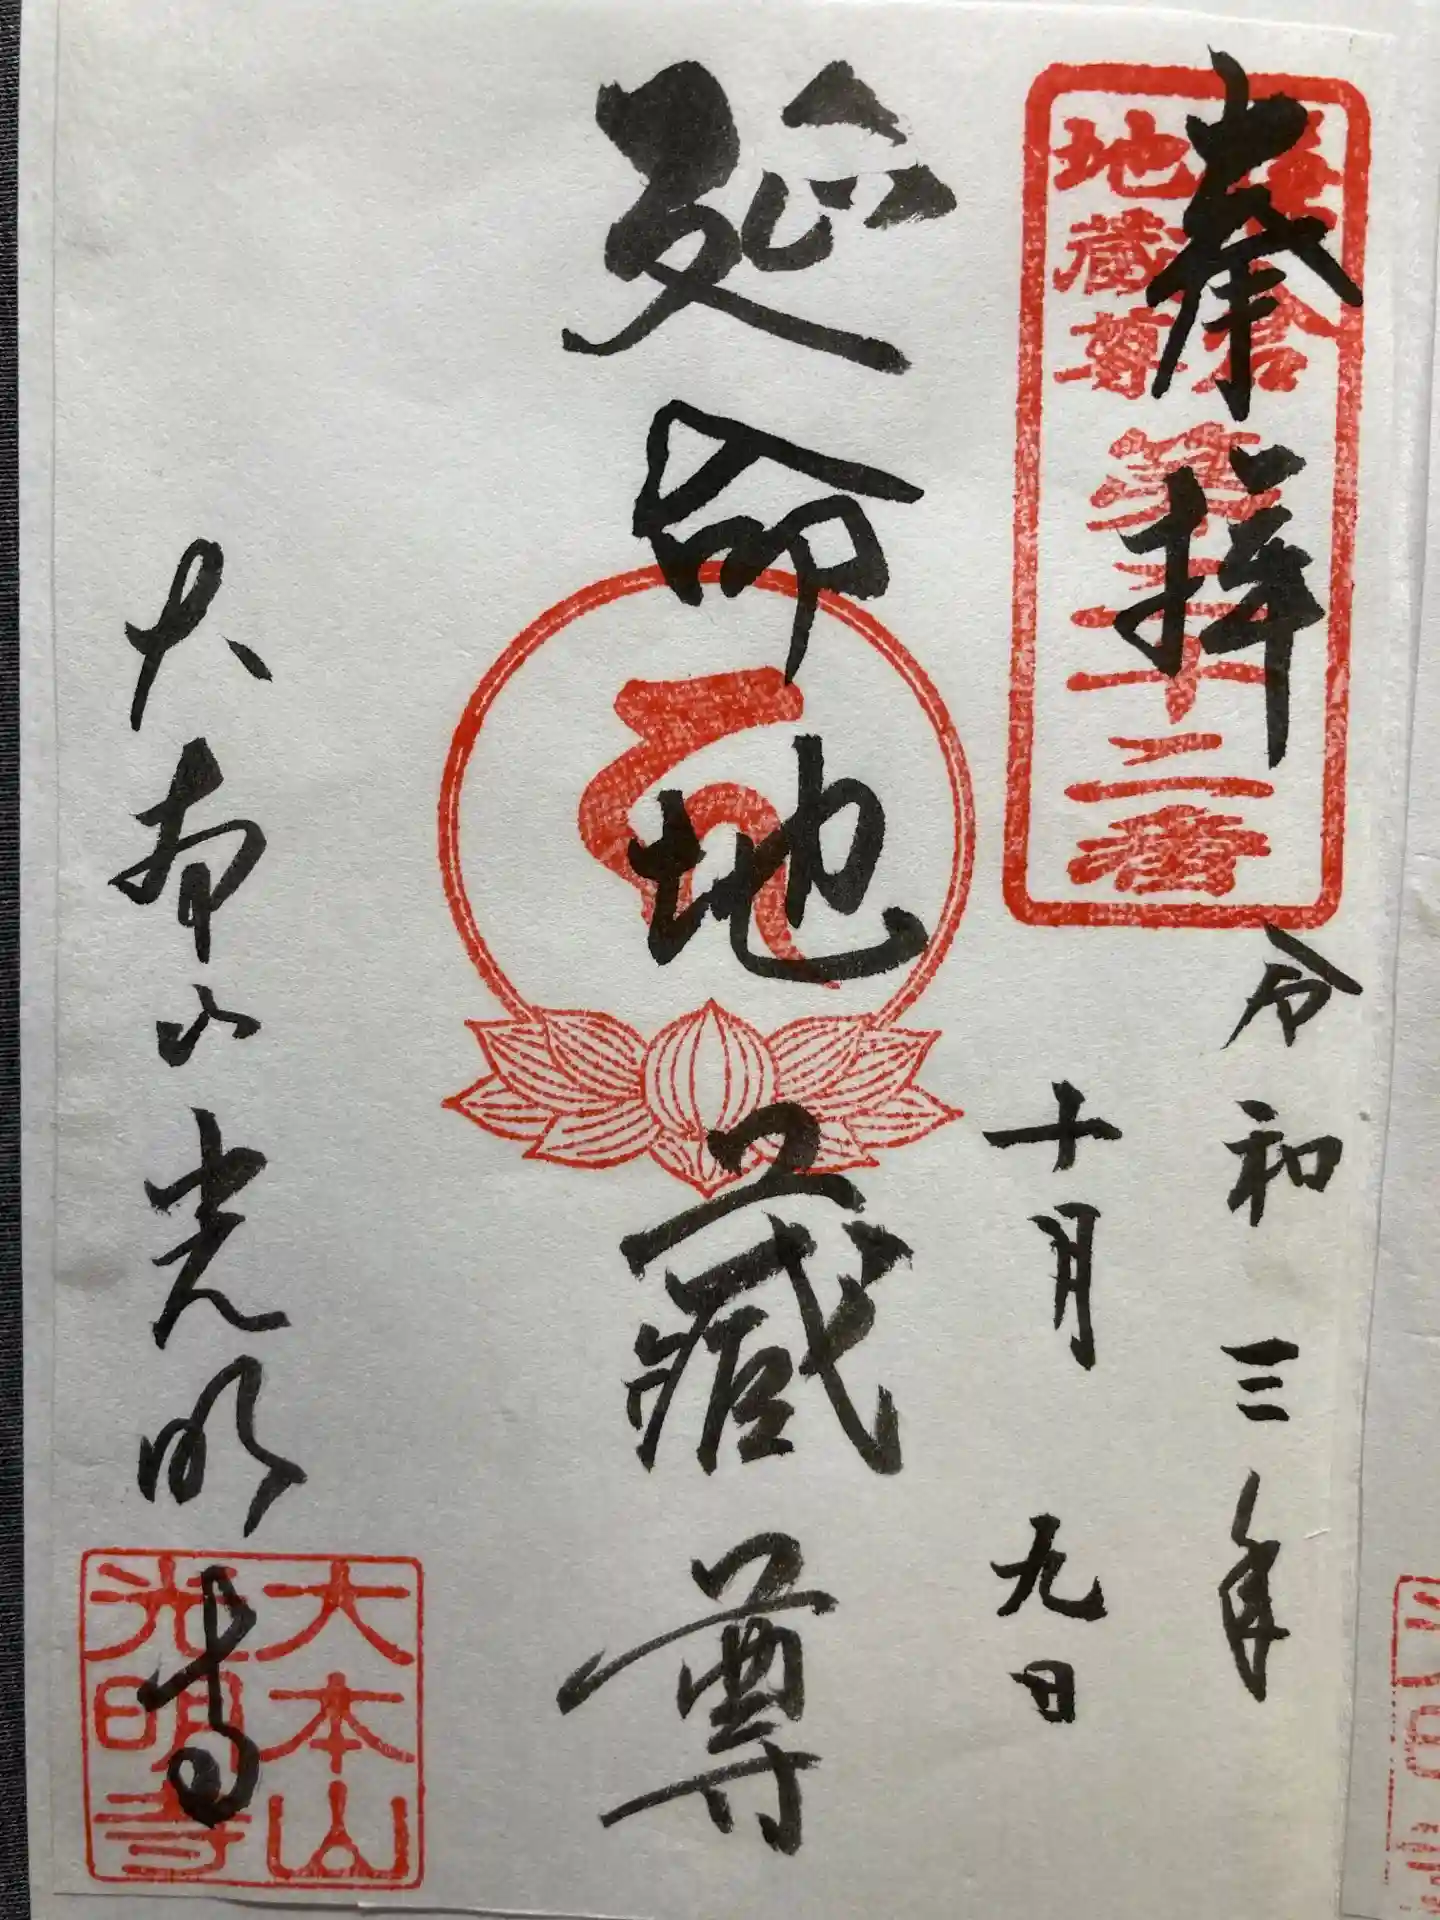 奉拝
地蔵尊
第二十二番
令和三年
十月九日
延命地蔵尊
大本山光明寺
大本山
光明寺